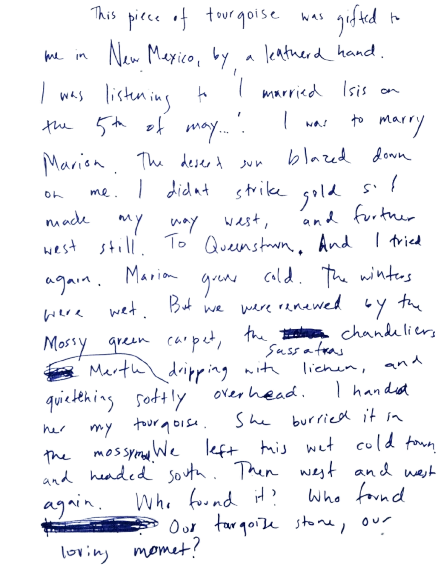 This piece of tourqoise was gifted to
me in New Mexico, by a leatherd hand.
I was listening to 'I married Isis on
the 5th of may...'. I was to marry
Marion. The desert sun blazed down
on me. I didnt strike gold so I
made my way west, and further
west still. To Queenstown. And I tried
again. Marion grew cold. The winters
were wet. But we were renewed by the
Mossy green carpet, the chandeliers
Sassafras
Myrtle dripping with lichen, and
quietening softly overhead. I handed
her my tourqoise. She burried it in
the mossy We left this wet cold town
and headed south. Then west and west
again. Who found it? Who found
Our turqoise stone, our
loving momet?